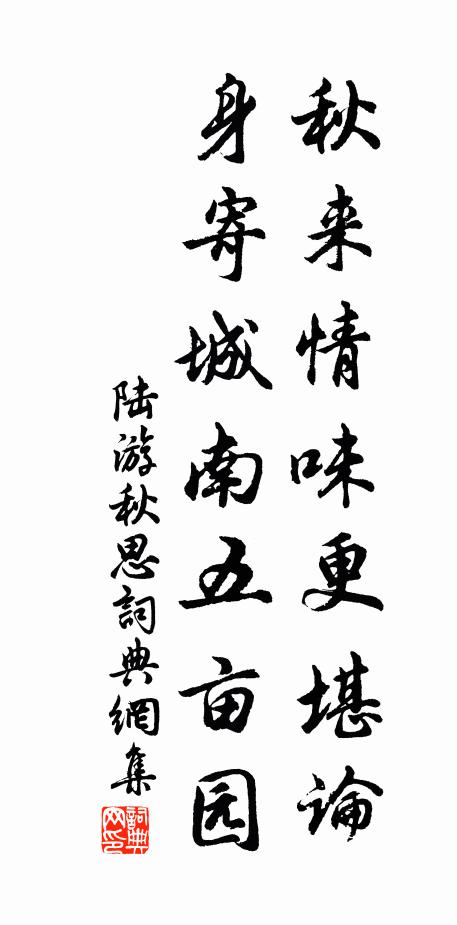 秋来情味更堪論
身寄城南五亩园
陆游秋思詞典網集
詞典
网印